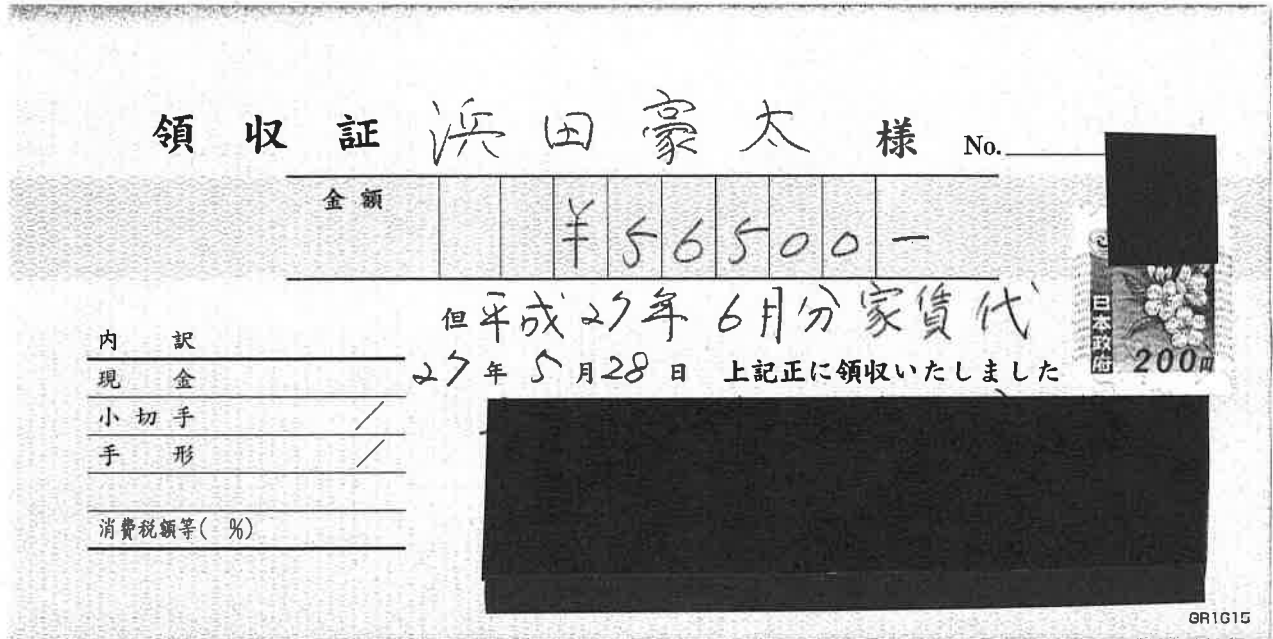 領収証 浜田豪太 様 No.
金額 ¥56500-
但平成27年6月分家賃代
27年5月28日 上記正に領収いたしました
内訳
現金
小切手 /
手形 /
消費税額等( %)
日本政府
200円
GR1G15